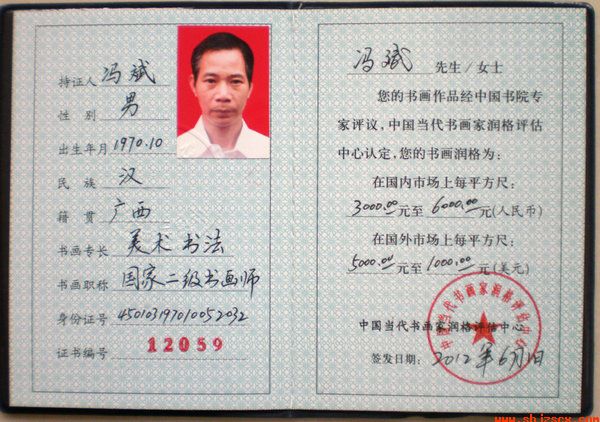 持证人 冯斌
性别 男
出生年月 1970.10
民族 汉
籍贯 广西
书画专长 美术 书法
书画职称 国家二级书画师
身份证号 450103197010052032
证书编号 12059
冯斌 先生/女士
您的书画作品经中国书院专
家评议，中国当代书画家润格评估
中心认定，您的书画润格为：
在国内市场上每平方尺：
3000.00元至 6000.00元(人民币)
在国外市场上每平方尺：
5000.00元至 1000.00元(美元)
中国当代书画家润格评估中心
中国当代书画家润格评估中心
签发日期：2012年6月1日
www.shjzscx.com